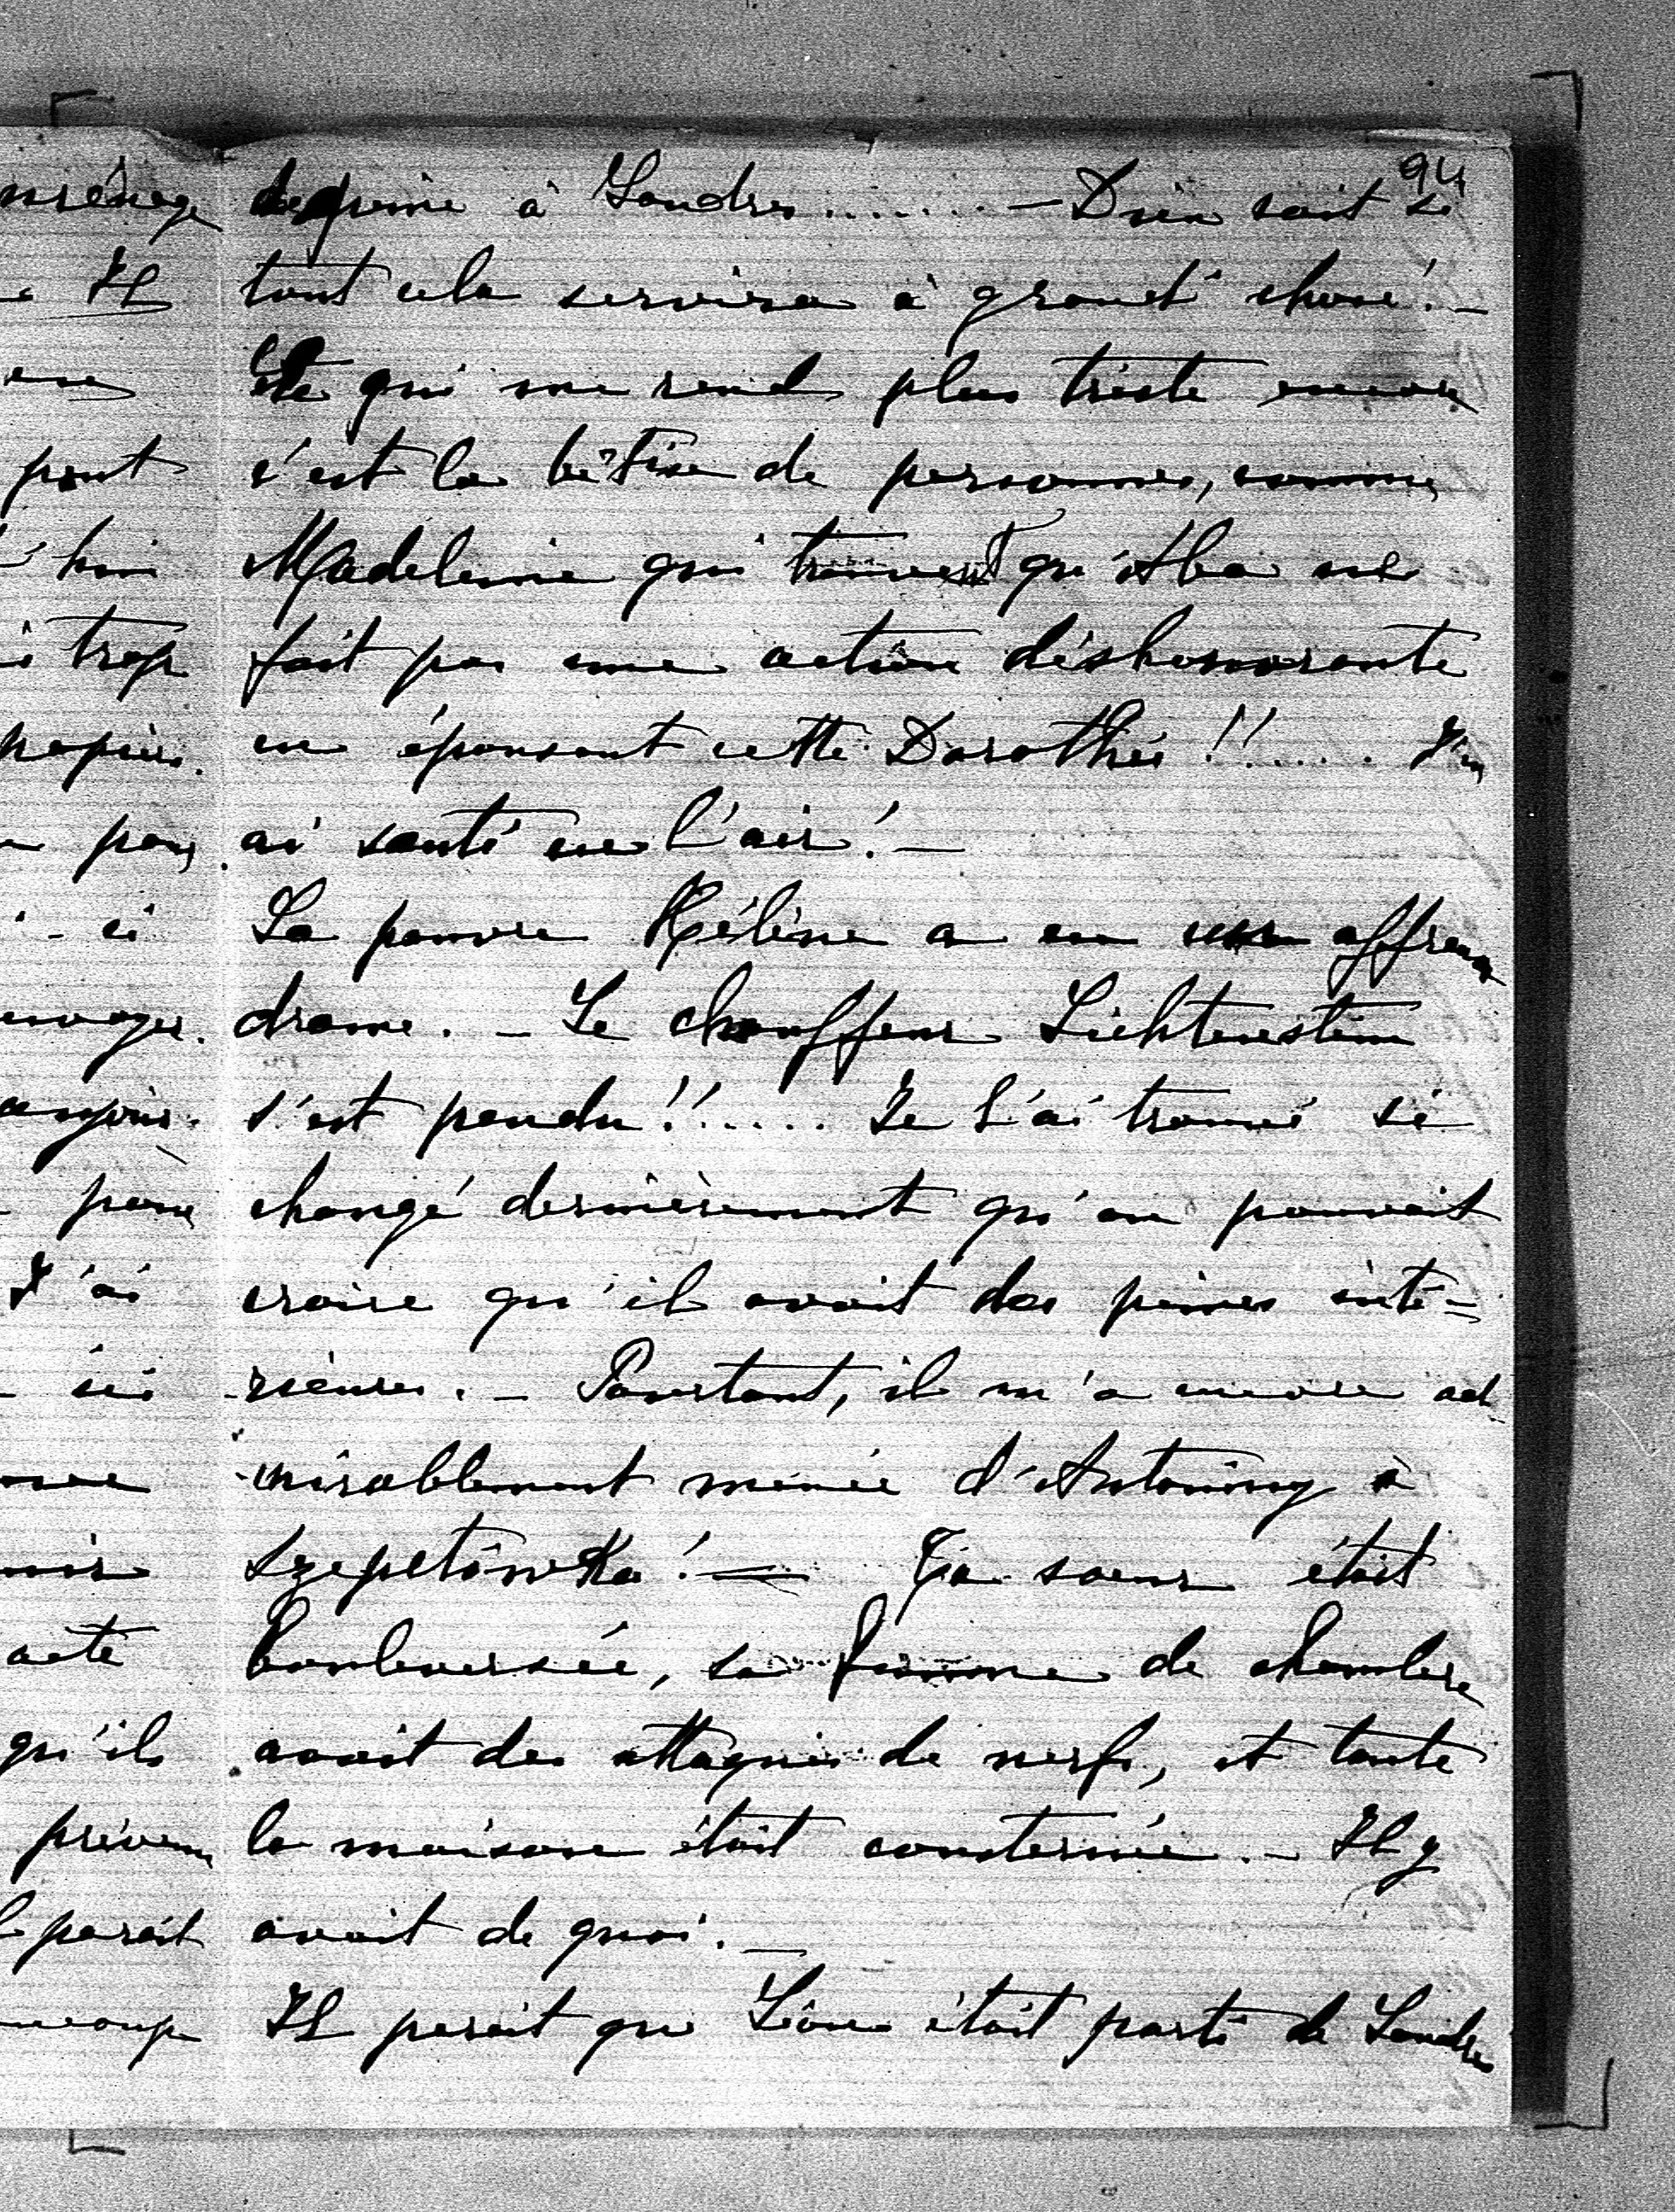 94
de peine à Londres....... — Dieu sait si
tout cela servira à grand' chose! —
Ce qui me rend plus triste encore
c'est la bêtise de personnes, comme
Madeleine qui trouvent qu'Aba ne
fait pas une action déshonorante
en épousant cette Dorothée!!..... J'en
ai sauté en l'air! —
La pauvre Hélène a eu un affreux
drame. — Le chauffeur Lichtenstein
s'est pendu!!..... Je l'ai trouvé si
changé dernièrement qu'on pouvait
croire qu'il avait des peines inté-
rieures. — Pourtant, il m'a encore ad-
mirablement menée d'Antoniny à
Szepetówka! — Ta sœur était
bouleversée, sa femme de chambre
avait des attaques de nerfs, et toute
la maison était consternée. — Il y
avait de quoi. —
Il parait que Léon était parti de Londres
ménage
Il
peut
trop
papiers.
pour
J'ai
acte
qu'ils
prévenu
parait